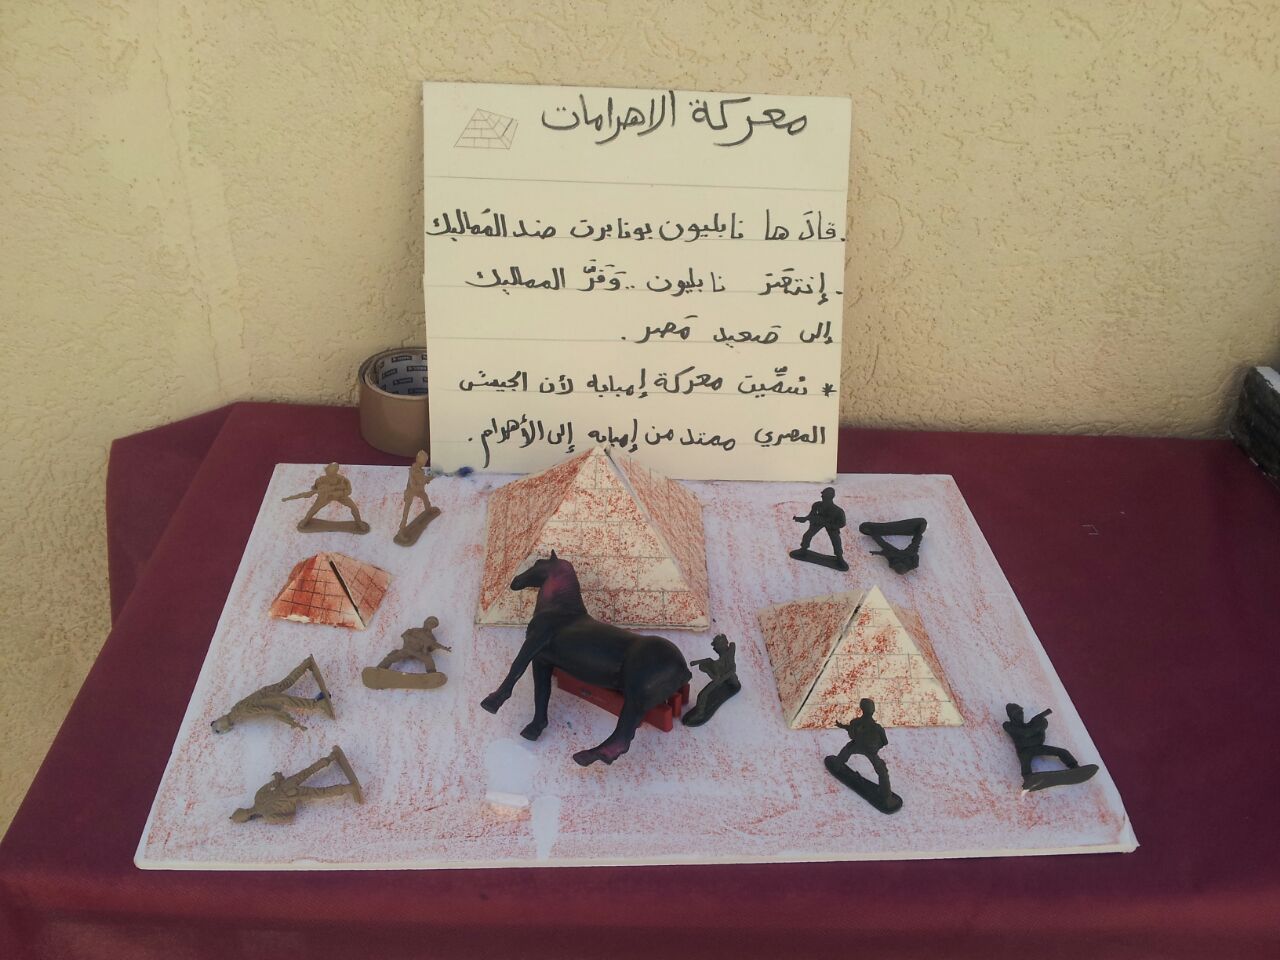 معركة الاهرامات
. قادَ ها نابليون بونابرت ضد المُماليك
. إنتصَرَ نابليون .. وَفَرَّ المماليك
إلى صَعيد مَصر .
* سُمِّيت معركة إمبابه لأن الجيش
المصري ممتد من إمبابه إلى الأهرام .